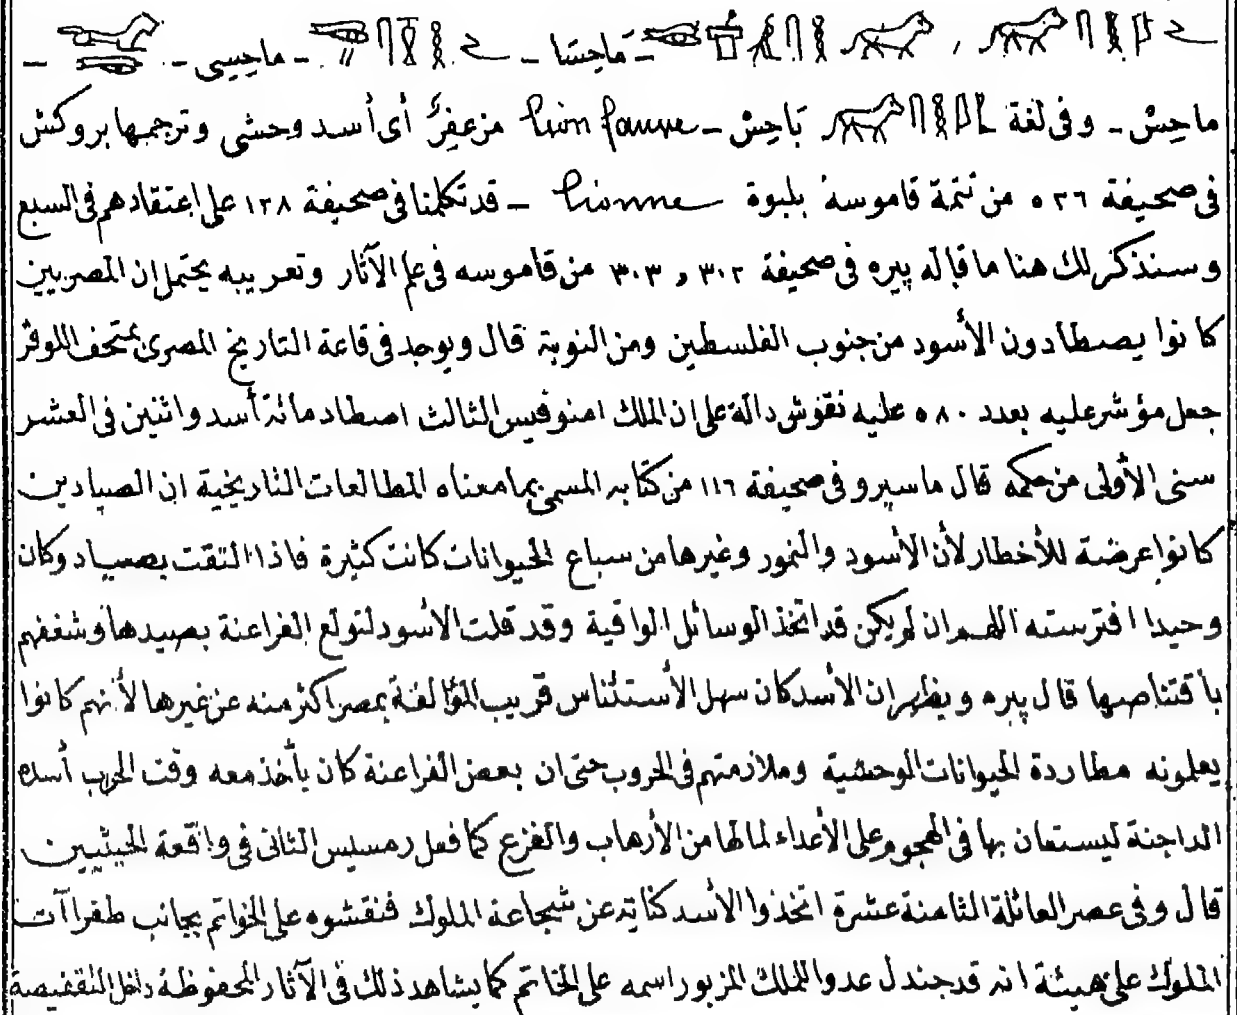 ـ مَاحِسَا ـ ـ ماحِسِى ـ ـ
ماحِسْ ـ وفى لغة بَاحِسْ ـ lion fauve مزعفِرُ أى أسد وحشى وترجمها بروكش
فى صحيفة ٥٣٦ من تتمة قاموسه بلبوة lionne ـ قد تكلمنا فى صحيفة ١٢٨ على اعتقادهم فى السبع
وسنذكر لك هنا ما قاله پيره فى صحيفة ٣٠٢ و ٣٠٣ من قاموسه فى علم الآثار وتعريبه يحتمل ان المصريين
كانوا يصطادون الأسود من جنوب الفلسطين ومن النوبة قال ويوجد فى قاعة التاريخ المصرى بمتحف اللوڤر
جعل مؤشر عليه بعدد ٥٨٠ عليه نقوش دالة على ان الملك امنوفيس الثالث اصطاد مائة أسد واثنين فى العشر
سنى الأولى من حكمه قال ماسپرو فى صحيفة ١١٦ من كتابه المسمى بما معناه المطالعات التاريخية ان الصيادين
كانوا عرضة للأخطار لأن الأسود والنمور وغيرها من سباع الحيوانات كانت كثيرة فاذا التقت بصياد وكان
وحيدا افترسته اللهم ان لم يكن قد اتخذ الوسائل الواقية وقد قلت الأسود لتولع الفراعنة بصيدها وشغفهم
باقتناصها قال پيره ويظهر ان الأسد كان سهل الأستئناس قريب المؤالفة بمصر اكثر منه عن غيرها لأنهم كانوا
يعلمونه مطاردة الحيوانات الوحشية وملازمتهم فى الحروب حتى ان بعض الفراعنة كان يأخذ معه وقت الحرب أسده
الداجنة ليستعان بها فى الهجوم على الأعداء لما لها من الأرهاب والفزع كما فعل رمسيس الثانى فى واقعة الحيثيين
قال وفى عصر العائلة الثامنة عشرة اتخذوا الأسد كناية عن شجاعة الملوك فنقشوه على الخواتم بجانب طغراآت
الملوك على هيئة انه قد جندل عدو الملك المزبور اسمه على الخاتم كما يشاهد ذلك فى الآثار المحفوظة داخل التقفيصة